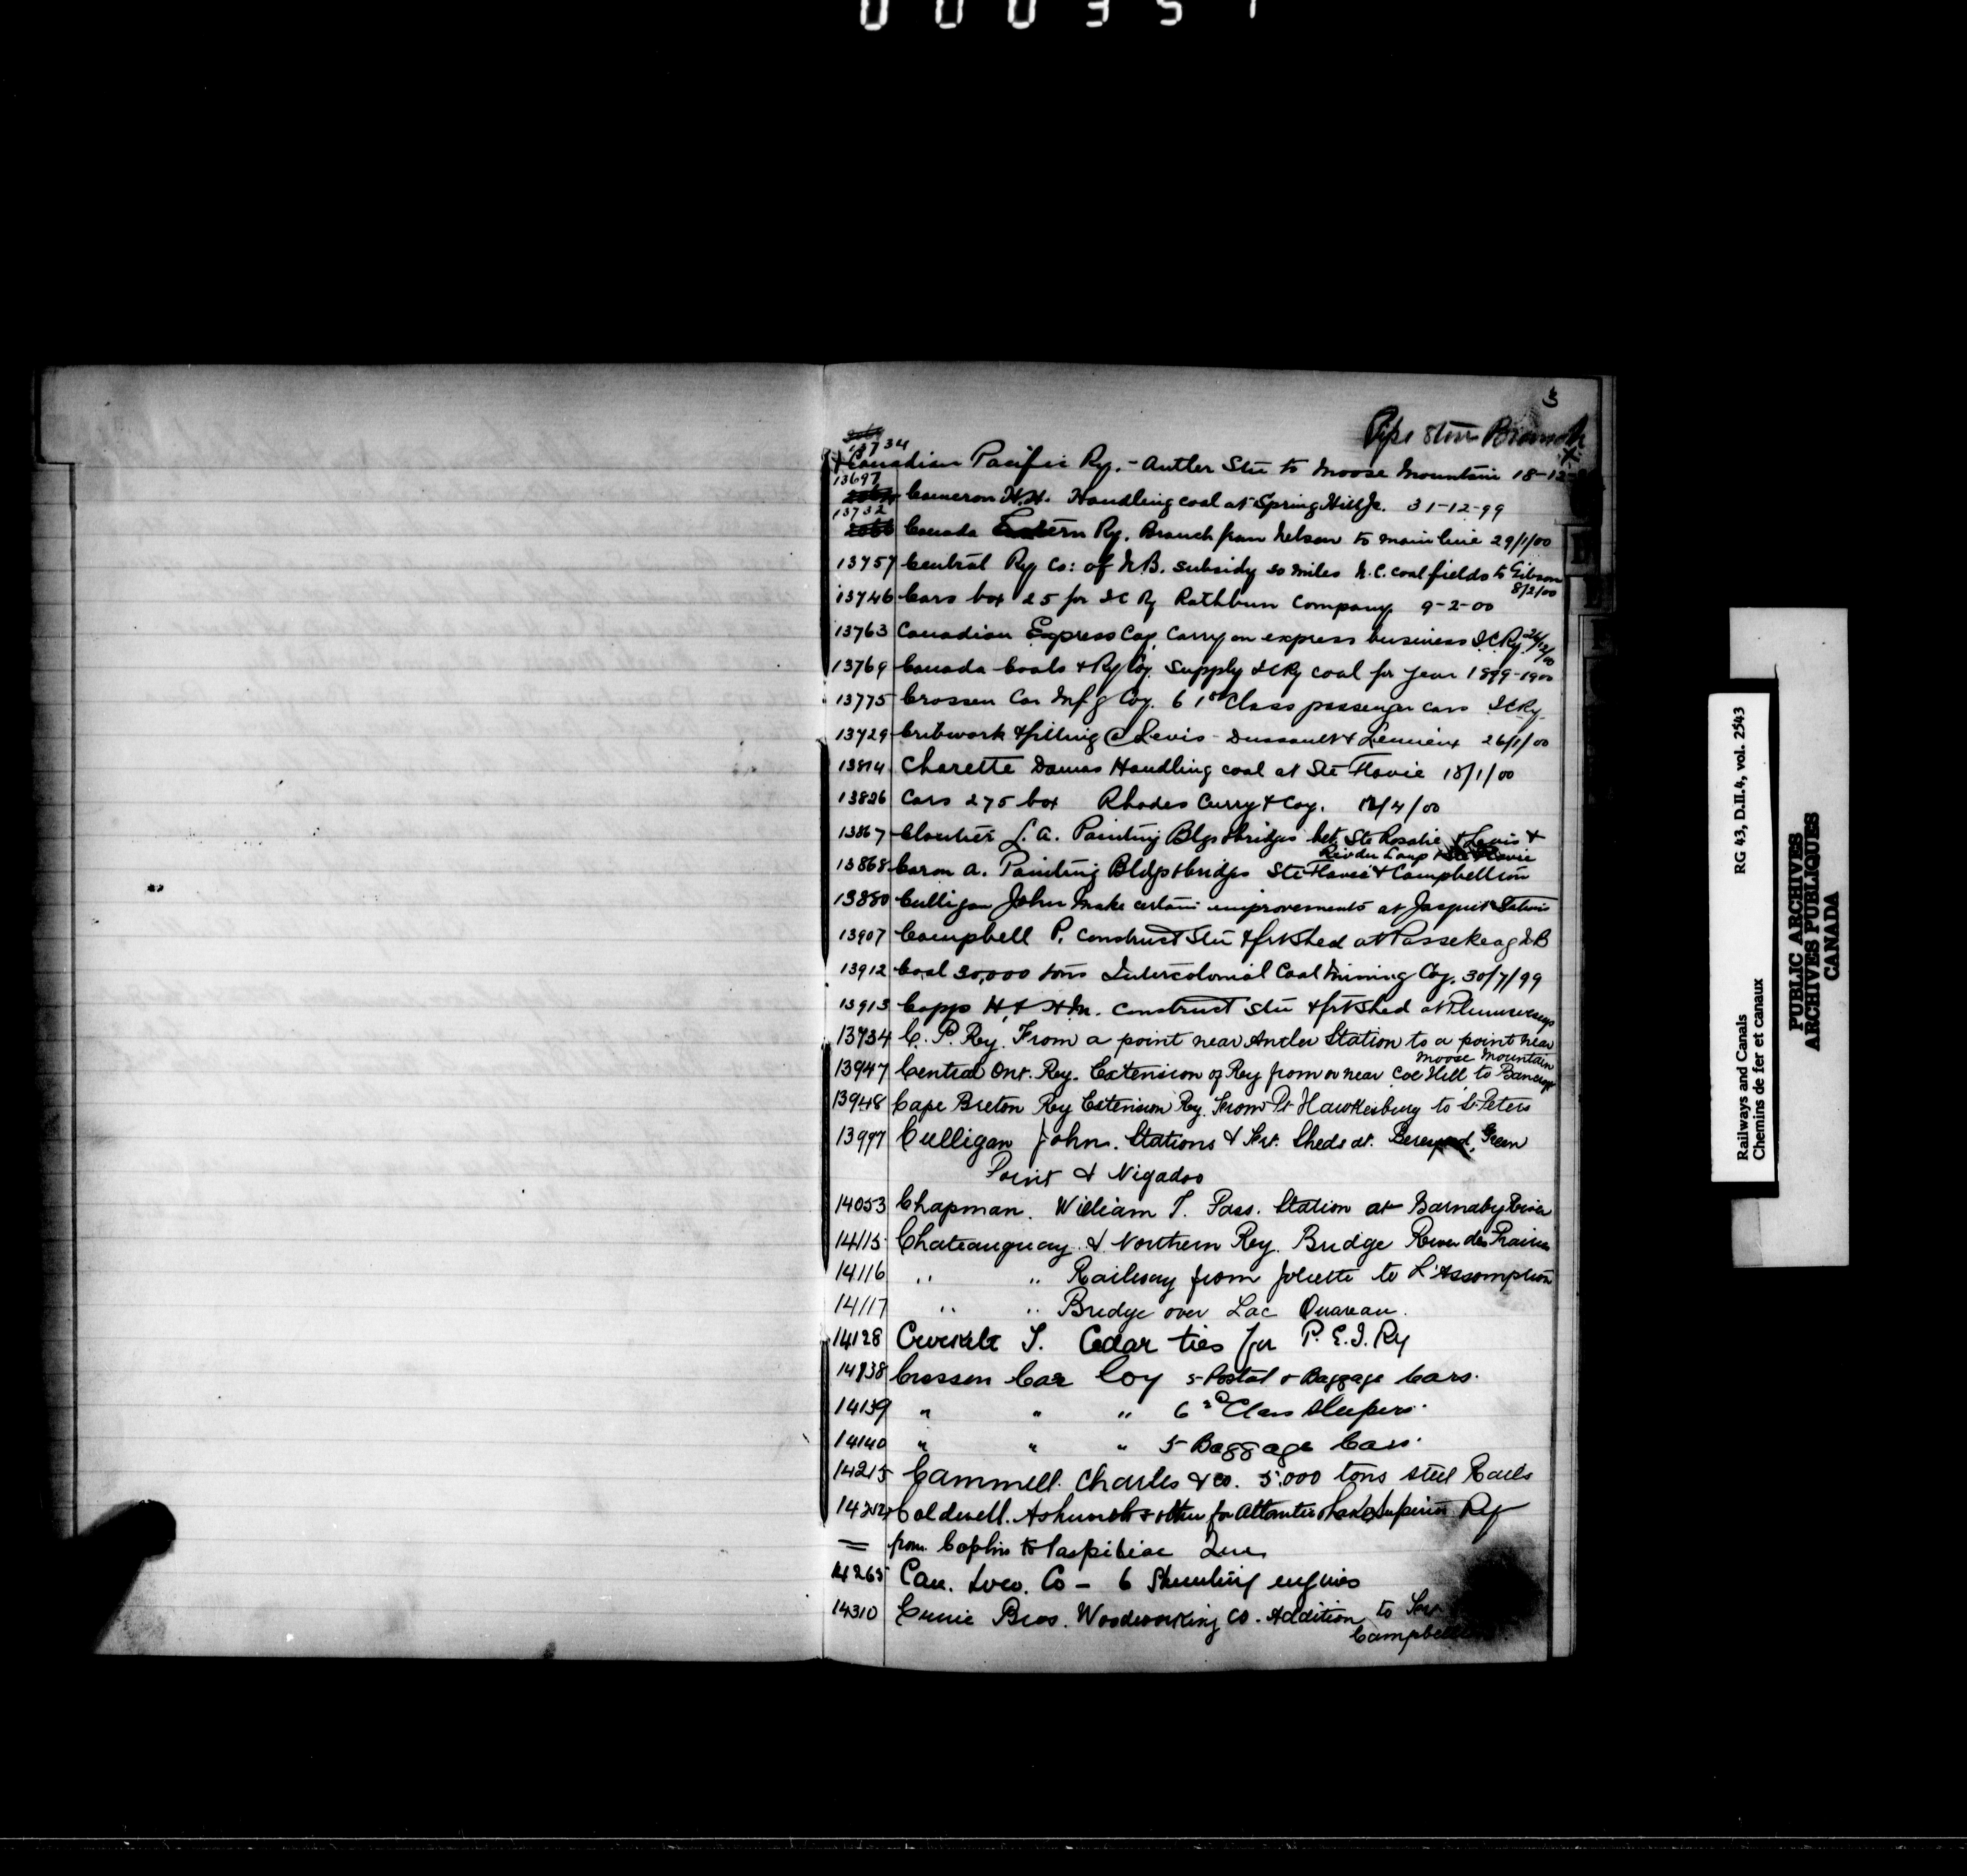 000357
3
Pipe Stone Branch
13734
Canadian Pacific Ry. - Antler Stn to Moose Mountain 18-12-
13697 Cameron H.H. Handling coal at Spring Hill Jc. 31-12-99
13732 Canada Eastern Ry. Branch from Nelson to main line 29/1/00
13757 Central Ry Co: of N.B. subsidy miles N.C. coal fields to Gibson
8/2/00
13746 Cars box 25 for I C Ry Rathbun Company 9-2-00
13763 Canadian Express Coy. Carry on express business I.C.Ry.
13769 Canada Coals & Ry Coy. Supply I C Ry coal for year 1899-1900
13775 Crossen Car Mfg Coy. 6 1st Class passenger cars I C Ry.
13729 Cribwork & filling @ Levis - Dussault & Lemieux 26/1/00
13814 Charette Damas Handling coal at Ste Flavie 18/1/00
13826 Cars 275 box Rhodes Curry & Coy. 12/4/00
13867 Cloutier J. A. Painting Blgs & bridges bet. Ste Rosalie & Levis &
Riv du Loup & Ste Flavie
13868 Caron A. Painting Bldgs & bridges Ste Flavie & Campbellton
13880 Culligan John Make certain improvements at Jacquet Station
13907 Campbell P. construct Stn & frt shed at Passekeag N B
13912 Coal 30,000 tons Intercolonial Coal Mining Coy. 30/7/99
13913 Copp H, & H.M. construct Stn & frt shed at Plumweseep
13734 C. P. Ry. From a point near Antler Station to a point near
Moose Mountain
13947 Central Ont. Ry. Extension of Ry from or near Coe Hill to Bancroft
13948 Cape Breton Ry Extension Ry. From Pt Hawkesbury to St. Peters
13997 Culligan John. Stations & Frt. Sheds at. Green
Point & Nigadoo
14053 Chapman. William T. Pass. Station at Barnaby River
14115 Chateauguay & Northern Ry. Bridge River des Prairies
14116 " " Railway from Joliette to L'Assomption
14117 " " Bridge over Lac Ouareau.
14128 T. Cedar ties for P.E.I. Ry
14138 Crossen Car Coy 5 Postal & Baggage Cars.
14139 " " " 6 2d Class Sleepers.
14140 " " " 5 Baggage Cars.
14215 Cammell. Charles & Co. 5.000 tons steel Rails
Caldwell. Ashworth & others for Atlantic & Lake Superior Ry
= from Caplin to Paspebiac Que.
14265 Can. Loco. Co - 6 Shunting engines
14310 Currie Bros. Woodworking Co. Addition to
Railways and Canals RG 43, D.II.4, vol. 2543
Chemins de fer et canaux
PUBLIC ARCHIVES
ARCHIVES PUBLIQUES
CANADA